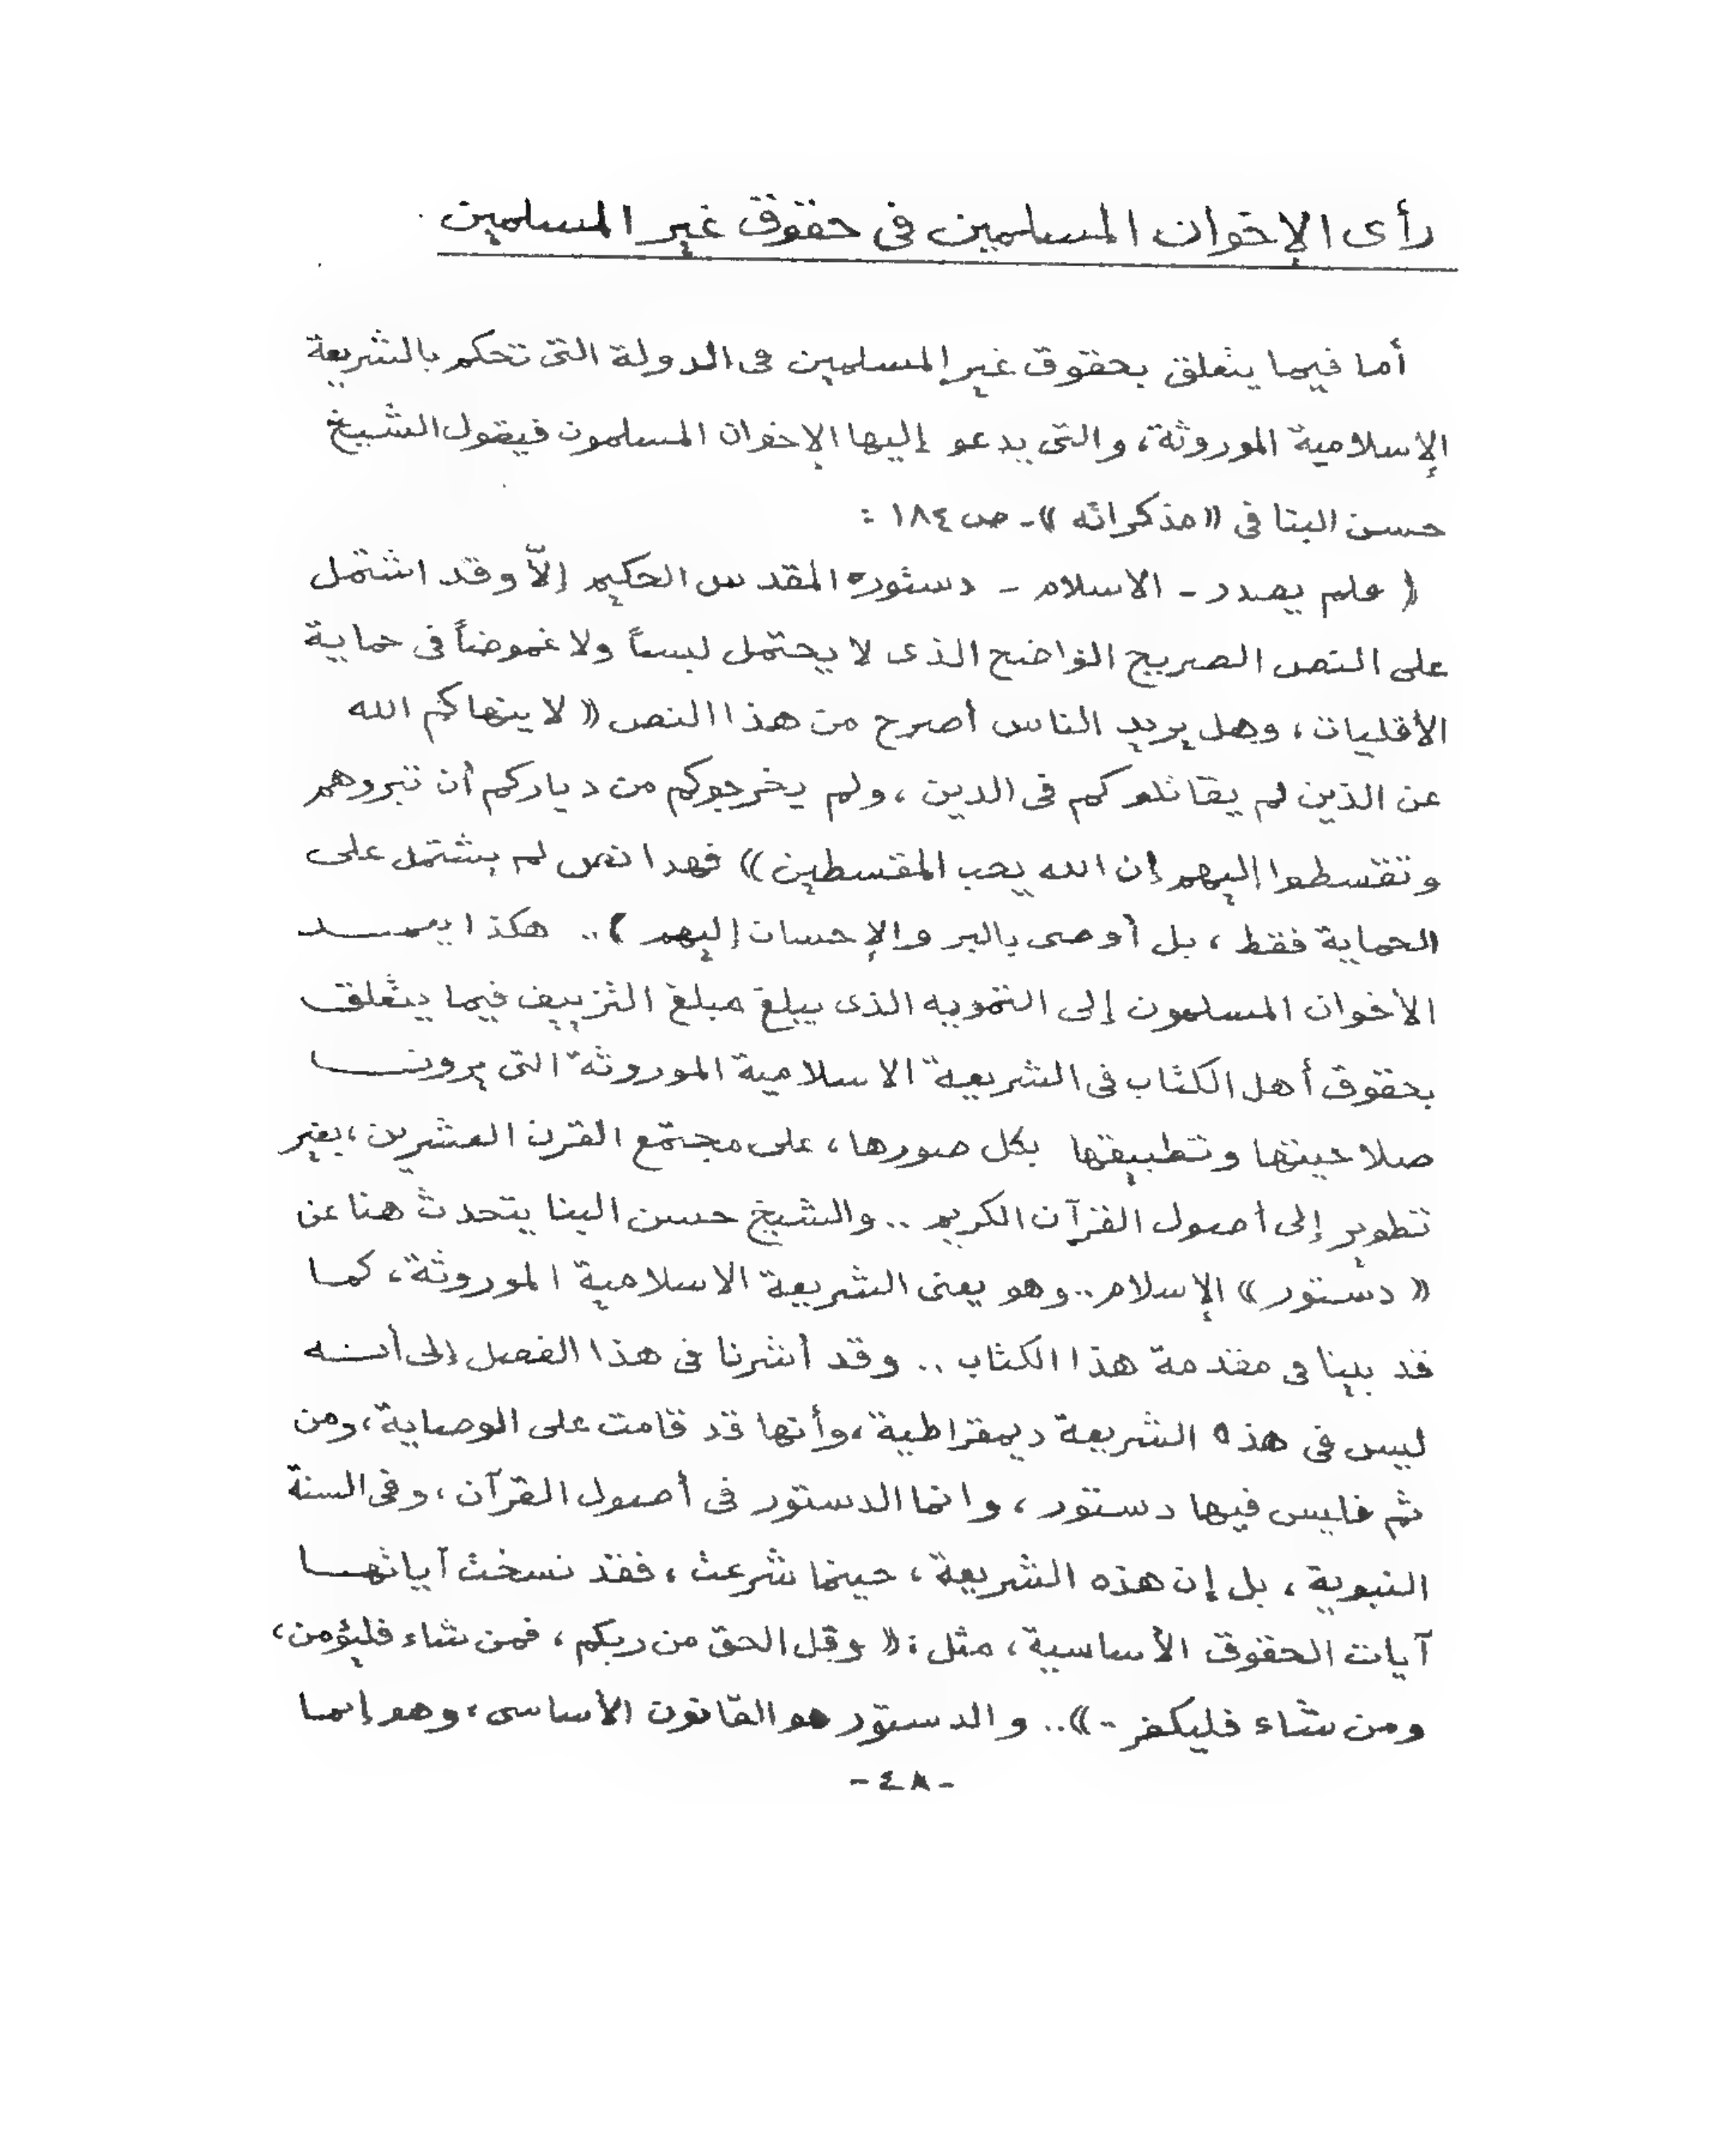 رأى الإخوان المسلمين فى حقوق غير المسلمين
أما فيما يتعلق بحقوق غير المسلمين فى الدولة التى تحكم بالشريعة
الإسلامية الموروثة، والتى يدعو إليها الإخوان المسلمون فيقول الشيخ
حسن البنا فى «مذكراته» - ص ١٨٤ :
( فلم يصدر - الاسلام - دستوره المقدس الحكيم إلاّ وقد اشتمل
على النص الصريح الواضح الذى لا يحتمل لبساً ولا غموضاً فى حماية
الأقليات، وهل يريد الناس أصرح من هذا النص « لا ينهاكم الله
عن الذين لم يقاتلوكم فى الدين، ولم يخرجوكم من دياركم أن تبروهم
وتقسطوا إليهم إن الله يحب المقسطين» فهذا نص لم يشتمل على
الحماية فقط، بل أوصى بالبر والإحسان إليهم ).. هكذا يعمــد
الأخوان المسلمون إلى التمويه الذى يبلغ مبلغ التزييف فيما يتعلق
بحقوق أهل الكتاب فى الشريعة الاسلامية الموروثة التى يرونــا
صلاحيتها وتطبيقها بكل صورها، على مجتمع القرن العشرين، بغير
تطوير إلى أصول القرآن الكريم .. والشيخ حسن البنا يتحدث هنا عن
« دستور» الإسلام.. وهو يعنى الشريعة الاسلامية الموروثة، كما
قد بينا فى مقدمة هذا الكتاب .. وقد أشرنا فى هذا الفصل إلى أنــه
ليس فى هذه الشريعة ديمقراطية، وأنها قد قامت على الوصاية، ومن
ثم فليس فيها دستور، وانما الدستور فى أصول القرآن، وفى السنة
النبوية، بل إن هذه الشريعة، حينما شرعت، فقد نسخت آياتهــا
آيات الحقوق الأساسية، مثل: « وقل الحق من ربكم، فمن شاء فليؤمن،
ومن شاء فليكفر -».. والدستور هو القانون الأساسى، وهو إنما
- ٤٨ -